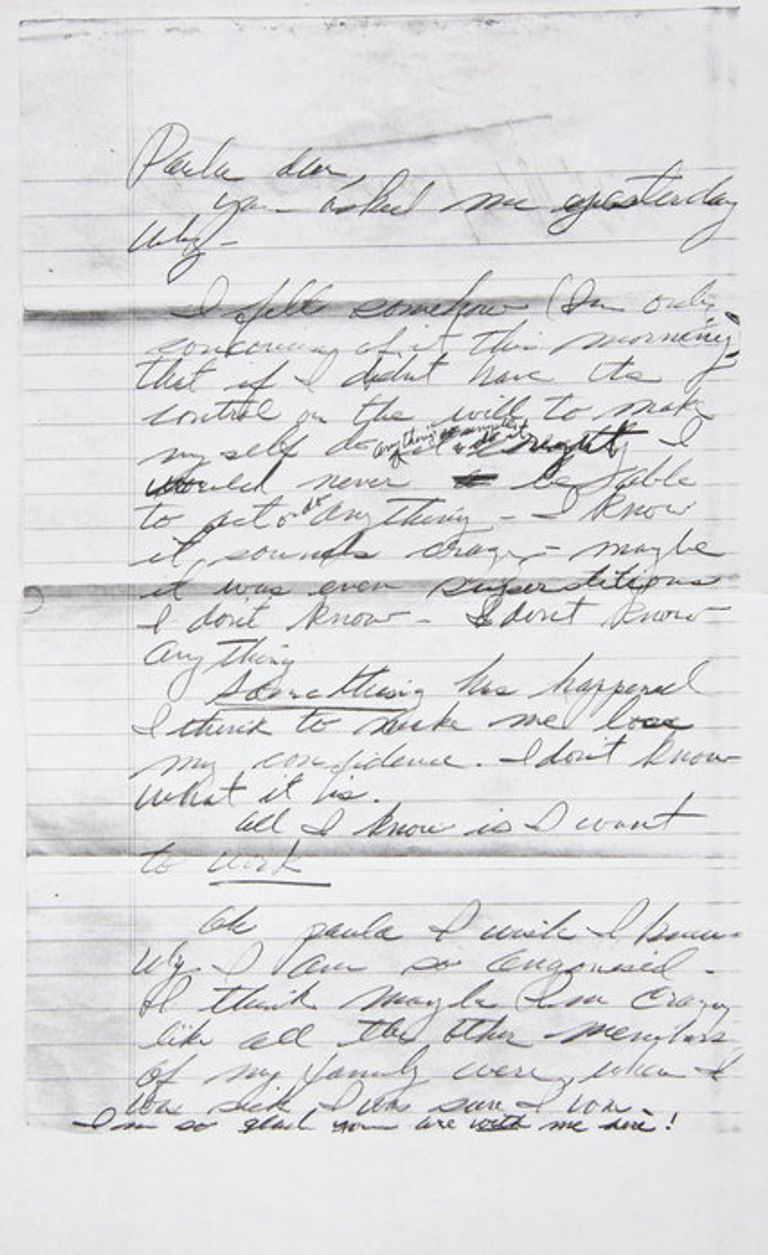 Paula dear,
you asked me yesterday
why -
I felt somehow (Im only
concouncus of it this morning)
that if I didnt have the
control or the will to make
my self do anything simplest
& do it right I
would never be able
to act or do anything - I know
it sounds crazy - maybe
it was even supersititious
I don't know - I don't know
anything
Something has happened
I think to make me lose
my confidence. I don't know
what it is.
all I know is I want
to work
Oh paula I wish I knew
why I am so anguised -
I think maybe I'm crazy
like all the other members
of my family were, when I
was sick I was sure I was
I'm so glad you are with me here!